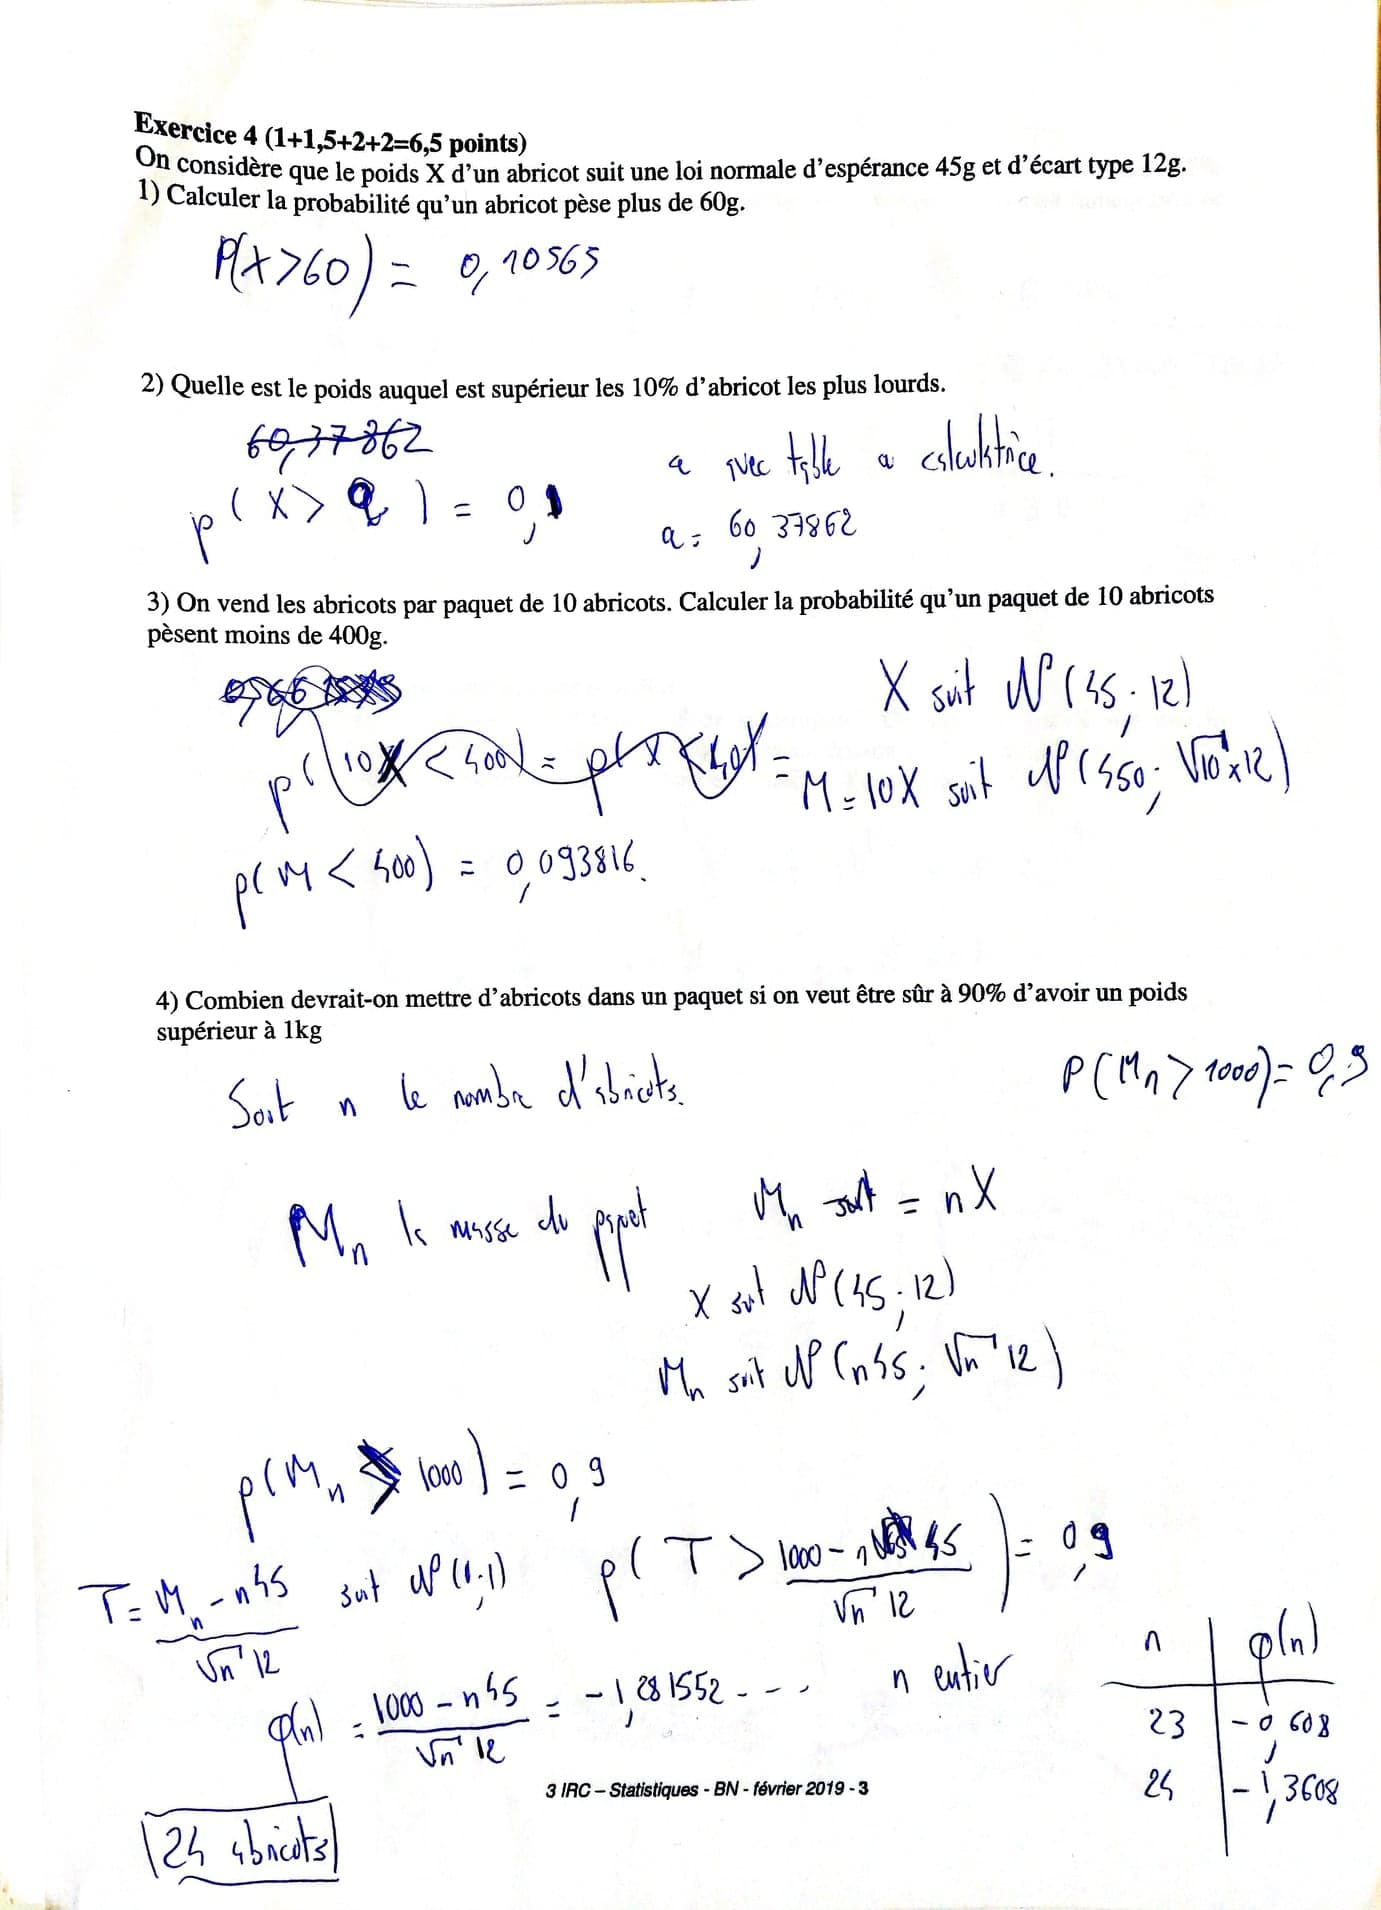 Exercice 4 (1+1,5+2+2=6,5 points)
On considère que le poids X d'un abricot suit une loi normale d'espérance 45g et d'écart type 12g.
1) Calculer la probabilité qu'un abricot pèse plus de 60g.
P(X>60) = 0,10565
2) Quelle est le poids auquel est supérieur les 10% d'abricot les plus lourds.
60,37862
p(X > a) = 0,1
a avec table a calculatrice.
a = 60,37862
3) On vend les abricots par paquet de 10 abricots. Calculer la probabilité qu'un paquet de 10 abricots
pèsent moins de 400g.
X suit N(45; 12)
p(10X < 400) = p(X < 40) =
M = 10X suit N(450; √10 x 12)
p(M < 400) = 0,093816.
4) Combien devrait-on mettre d'abricots dans un paquet si on veut être sûr à 90% d'avoir un poids
supérieur à 1kg
P(Mn > 1000) = 0,9
Soit n le nombre d'abricots.
Mn la masse du paquet
Mn suit = nX
X suit N(45; 12)
Mn suit N(n45; √n 12)
p(Mn > 1000) = 0,9
T = (Mn - n45)/(√n 12) suit N(0;1)
p(T > (1000 - n 45)/(√n 12)) = 0,9
φ(n) = (1000 - n45)/(√n 12) = -1,281552 - - .
n entier
n | φ(n)
23 | -0,608
24 | -1,3608
3 IRC – Statistiques - BN - février 2019 - 3
24 abricots